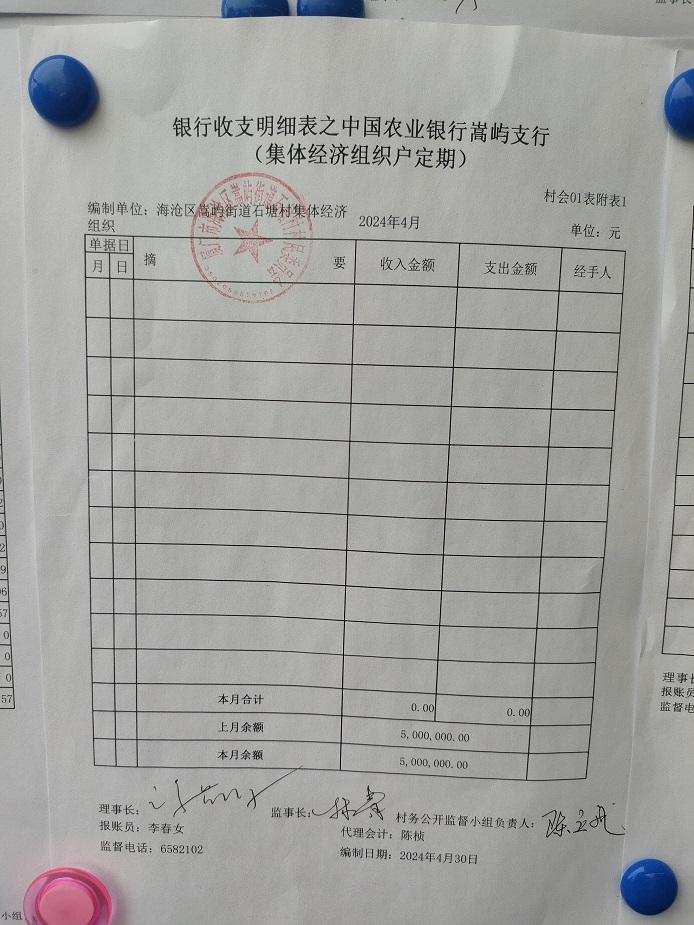 监事长
银行收支明细表之中国农业银行嵩屿支行
（集体经济组织户定期）
村会01表附表1
编制单位：海沧区嵩屿街道石塘村集体经济组织
2024年4月
单位：元
单据日
月 日 摘 要 收入金额 支出金额 经手人
本月合计 0.00 0.00
上月余额 5,000,000.00
本月余额 5,000,000.00
理事长： 监事长： 村务公开监督小组负责人：
报账员：李春女 代理会计：陈桢
监督电话：6582102 编制日期：2024年4月30日
理事长
报账员
监督电
小组